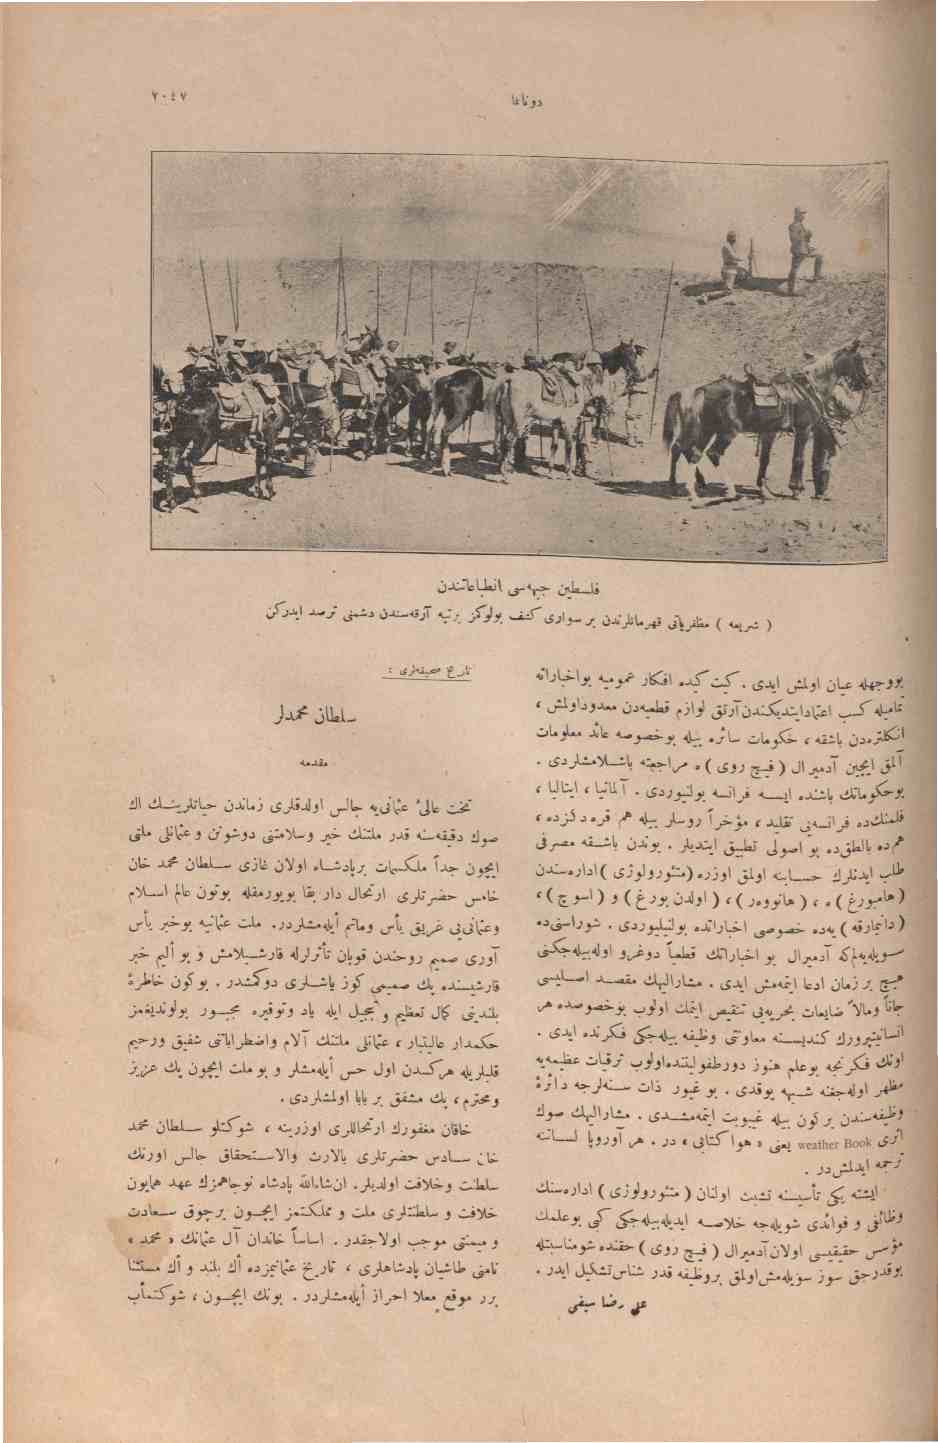 دوناغا
٢٠٤٧
فلسطین جبهه‌سی انطباعاتندن
( شریعه ) مظفریاتی قهرمانلرندن بر سواری کشف بولوکمز بر تپه آرقه‌سندن دشمنی ترصد ایدرکن
بووجهله عیان اولمش ایدی . کیت کیده افکار عمومیه بواخباراته
تمامیله کسب اعتمادایتدیکندن آرتق لوازم قطعیه‌دن معدوداولمش ،
انکلتره‌دن باشقه ، حکومات سائره بیله بوخصوصه عائد معلومات
آلمق ایچین آدمیرال ( فیچ روی ) ه مراجعته باشلامشلردی .
بوحکوماتک باشنده ایسه فرانسه بولنیوردی . آلمانیا ، ایتالیا ،
فلمنک‌ده فرانسه‌یی تقلید ، مؤخراً روسلر بیله هم قره دکزده ،
هم‌ده بالطق‌ده بو اصولی تطبیق ایتدیلر . بوندن باشقه مصرفی
طلب ایدنلرک حسابنه اولمق اوزره (متئورولوژی ) اداره‌سندن
( هامبورغ ) ه ، ( هانووەر ) ، ( اولدن بورغ ) و ( اسوچ ) ،
( دانیمارقه ) یه‌ده خصوصی اخباراتده بولنیلیوردی . شوراسنی‌ده
سویله‌یه‌لم‌که آدمیرال بو اخباراتک قطعیاً دوغرو اوله‌بیله‌جکنی
هیچ بر زمان ادعا ایتمه‌مش ایدی . مشارالیهک مقصد اصلیسی
جاناً ومالاً ضایعات بحریه‌یی تنقیص ایتمک اولوب بوخصوصده هر
انسانیتپرورک کندیسنه معاونتی وظیفه بیله‌جکی فکرنده ایدی .
اونک فکرنجه بوعلم هنوز دورطفولیتنده‌اولوب ترقیات عظیمه‌یه
مظهر اوله‌جغنه شبهه یوقدی . بو غیور ذات سنه‌لرجه دائرهٔ
وظیفه‌سندن برکون بیله غیبوبت ایتمه‌مشدی . مشارالیهک صوک
اثری weather Book یعنی « هوا کتابی » در . هر آوروپا لساننه
ترجمه ایدلمش‌در .
ایشته یکی تأسیسنه تشبث اولنان ( متئورولوژی ) اداره‌سنک
وظائفی و فوائدی شویله‌جه خلاصه ایدیله‌بیله‌جکی کبی بوعلمک
مؤسس حقیقیسی اولان آدمیرال ( فیچ روی ) حقنده شومناسبتله
بوقدرجق سوز سویله‌مش‌اولمق بروظیفه قدر شناس‌تشکیل ایدر .
علی رضا سیفی
تاریخ صحیفه‌لری :
سلطان محمدلر
مقدمه
تخت عالیٔ عثمانی‌یه جالس اولدقلری زماندن حیاتلرینک اك
صوك دقیقه‌سنه قدر ملتنك خیر وسلامتنی دوشونن و عثمانلی ملتی
ایچون جداً ملکسمات برپادشاه اولان غازی سلطان محمد خان
خامس حضرتلری ارتحال دار بقا بویورمقله بوتون عالم اسلام
وعثمانی‌یی غریق یأس وماتم أیله‌مشلردر. ملت عثمانیه بوخبر یأس
آوری صمیم روحندن قوپان تأثرلرله قارشیلامش و بو ألیم خبر
قارشیسنده پك صمیمی کوز یاشلری دوکمشدر . بوکون خاطرهٔ
بلندینی کمال تعظیم و تبجیل ایله یاد وتوقیره مجبور بولوندیغمز
حکمدار عالیتبار ، عثمانلی ملتنك آلام واضطراباتنی شفیق ورحیم
قلبلریله هرکسدن اول حس أیله‌مشلر و بو ملت ایچون پك عزیز
ومحترم ، پك مشفق بر بابا اولمشلردی .
خاقان مغفورك ارتحاللری اوزرینه ، شوکتلو سلطان محمد
خان سادس حضرتلری بالارث والاستحقاق جالس اورنك
سلطنت وخلافت اولدیلر. ان‌شاءالله پادشاه نوجاهمزك عهد همایون
خلافت و سلطنتلری ملت و مملکتمز ایچون برچوق سعادت
و میمنتی موجب اولاجقدر . اساساً خاندان آل عثمانك « محمد »
نامنی طاشیان پادشاهلری ، تاریخ عثمانیمزده أك بلند و أك مستثنا
برر موقع معلا احراز أیله‌مشلردر . بونك ایچون ، شوکتمأب